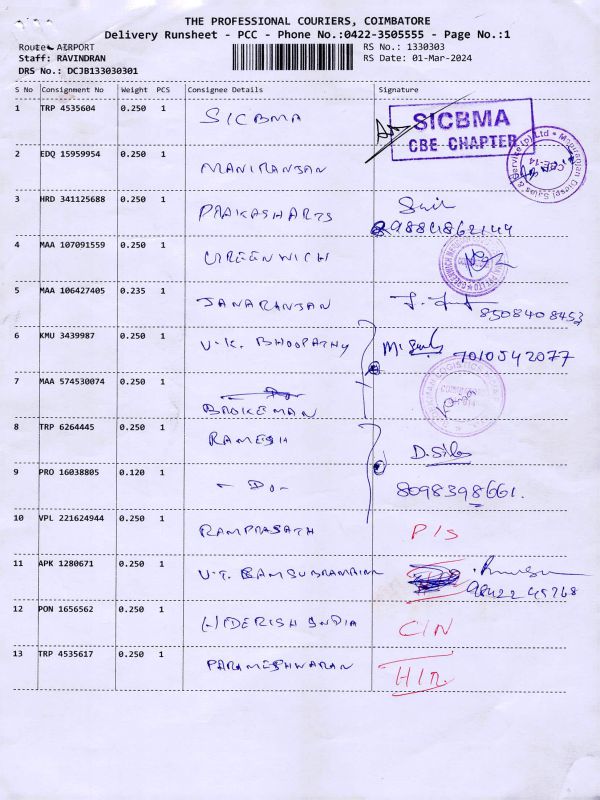 THE PROFESSIONAL COURIERS, COIMBATORE
Delivery Runsheet - PCC - Phone No.:0422-3505555 - Page No.:1
Route: AIRPORT
RS No.: 1330303
Staff: RAVINDRAN
RS Date: 01-Mar-2024
DRS No.: DCJB133030301
S No Consignment No Weight PCS Consignee Details Signature
1 TRP 4535604 0.250 1 SICBMA SICBMA
CBE CHAPTER
2 EDQ 15959954 0.250 1 MANIRANJAN
3 HRD 341125688 0.250 1 PRAKASHARTS
9884862144
4 MAA 107091559 0.250 1 GREENWICH
5 MAA 106427405 0.235 1 JANARANJAN 8508408453
6 KMU 3439987 0.250 1 V.K. BHOOPATHY 7010542077
7 MAA 574530074 0.250 1 BROKEMAN
8 TRP 6264445 0.250 1 RAMESH
9 PRO 16038805 0.120 1 - Do - 8098398661.
10 VPL 221624944 0.250 1 RAMPRASATH P/S
11 APK 1280671 0.250 1 98422 45768
12 PON 1656562 0.250 1 INDIA C/N
13 TRP 4535617 0.250 1 PARAMESHWARAN